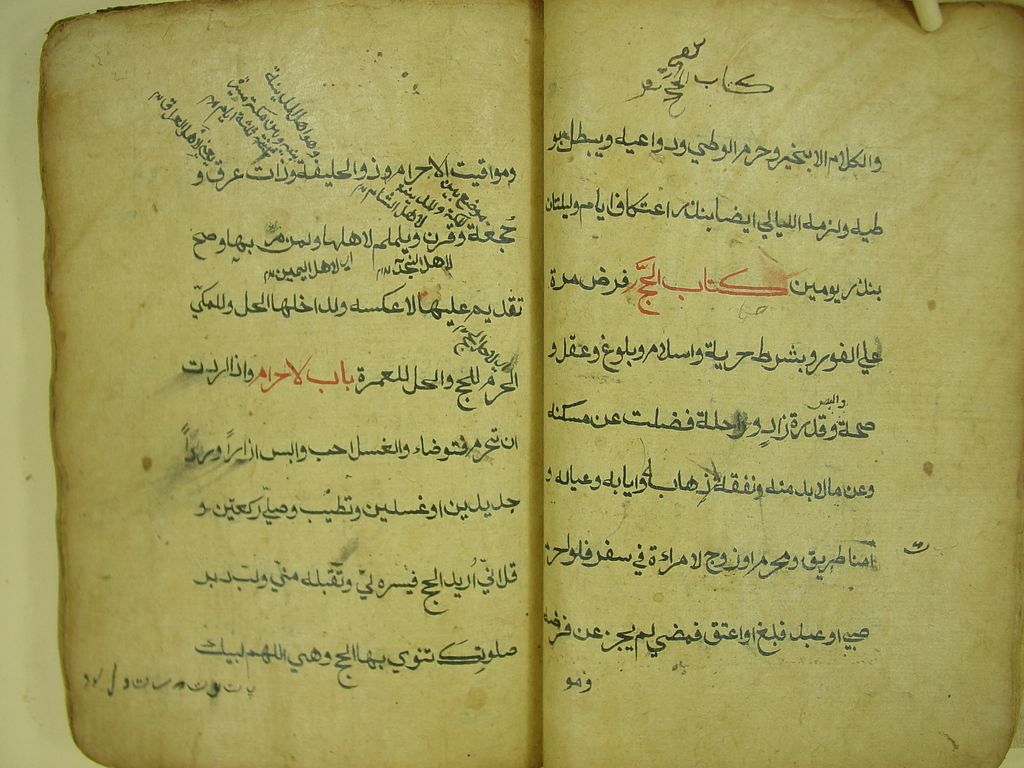 كتاب الحج
والكلام الا بخير وحرم الوطي ودواعيه ويبطل بو
طيه ولزمه الليالي ايضا بنذر اعتكاف ايام وليلتان
بنذر يومين كتاب الحَجّ فرض مرة
علي الفور وبشرط حرية واسلام وبلوغ وعقل و
صحة وقدرة زادٍ وراحلة فضلت عن مسكنه
وعن مالابد منه ونفقة ذهابه وايابه وعياله و
امنا طريق ومحرم اوزوج لامراءة في سفر فلواحرم
صبي اوعبد فبلغ اواعتق فمضي لم يجز عن فرضه
ومو
وهو اهل المدينة
يعني لاهل العراق
ومواقيت الاحرام ذو الحليفة وذات عرق و
موضع بين مكة والمدينة
لاهل الشام
حُجفة وقرن ويلملم لاهلها ولمن مر بها وصح
لاهل النجد
اي لاهل اليمن
تقديم عليها لا عكسه ولداخلها الحل وللمكيّ
الحرم للحج والحل للعمرة باب لاحرام واذا اردت
ان تحرم فتوضاء والغسل احب والبس ازاراً ورداً
جديدين اوغسلين وتطيّب وصلّ ركعتين و
قل انيّ اُريد الحج فيسره ليّ وتَقَبله منيّ ولبّ دبر
صلوتك تنوي بها الحج وهي اللهم لبيك